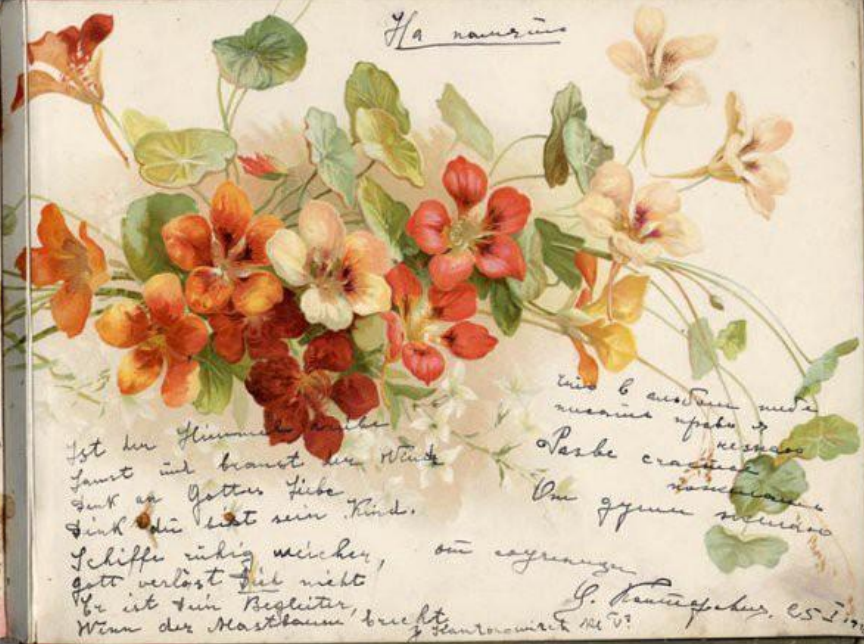 На память
Ist der Himmel trübe
Saust und braust der Wind
Denk an Gottes Liebe
Denk du bist sein Kind.
Schiffe ruhig weicher,
Gott verläst Dich nicht
Er ist dein Begleiter,
Wenn der Mastbaum bricht
Что в альбом тебе
писать право я
незнаю
Разве счастья
пожелать
От души желаю
от соученицы
25 I